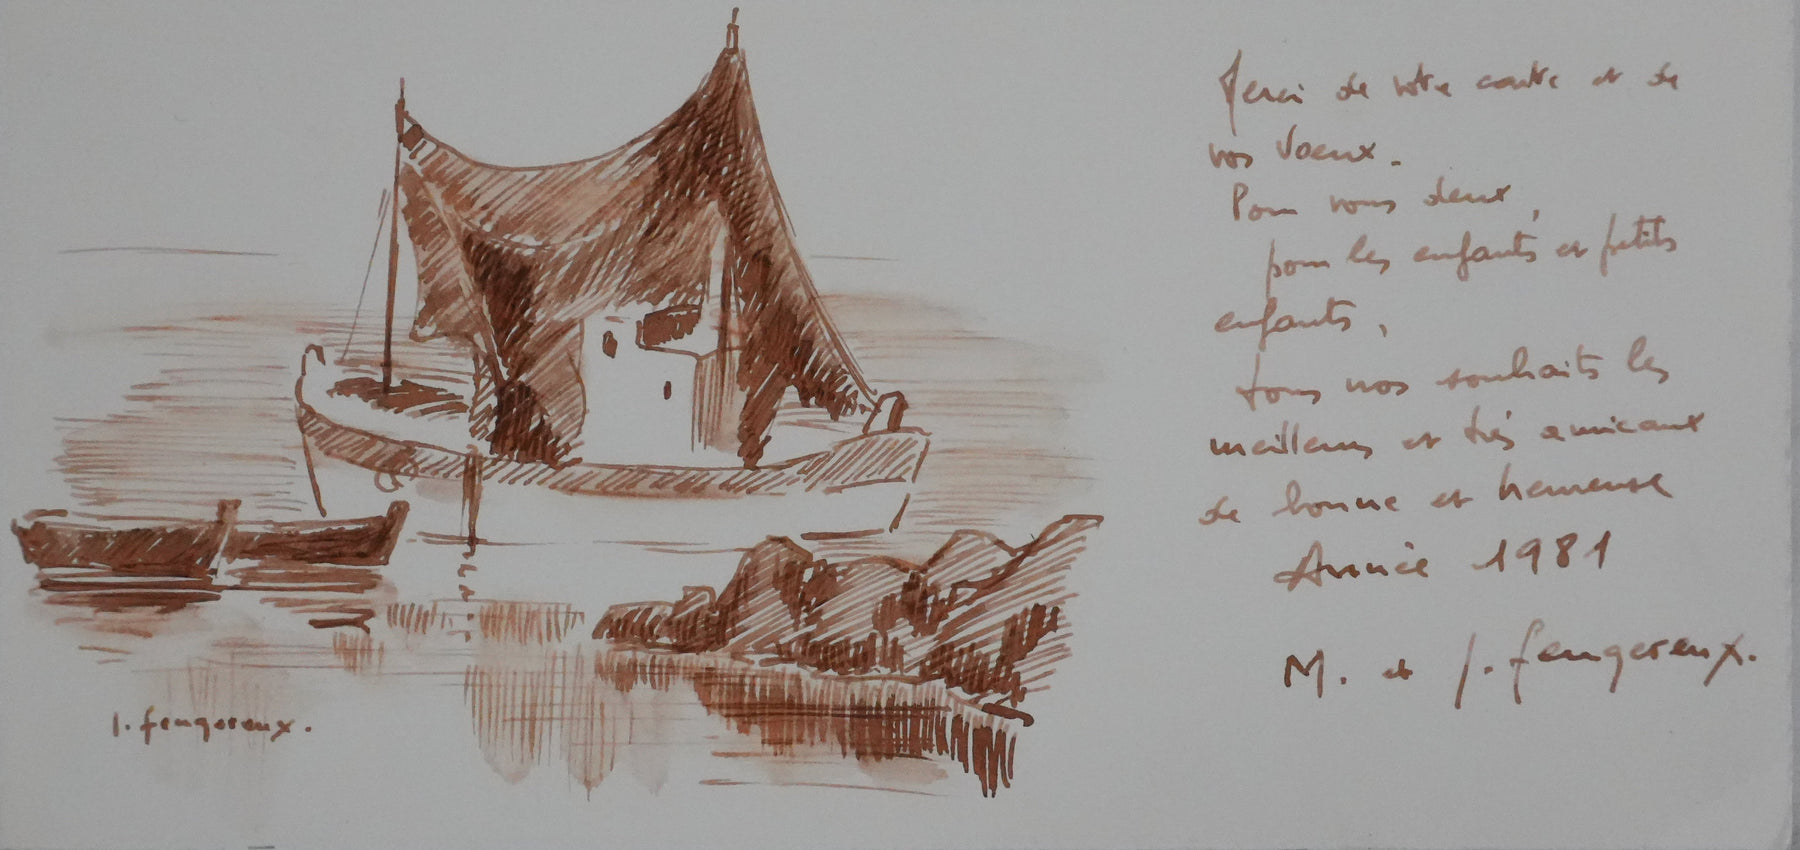 Merci de votre carte et de
vos Voeux.
Pour vous deux,
pour les enfants et petits
enfants,
tous nos souhaits les
meilleurs et très amicaux
de bonne et heureuse
Année 1981
M. et J. feugereux.
J. feugereux.